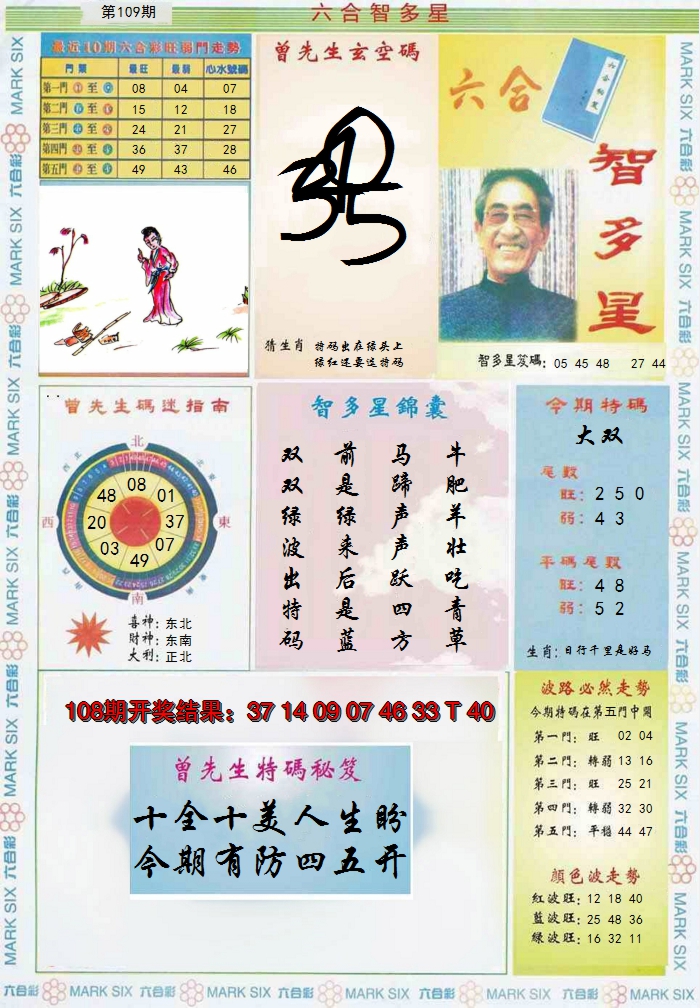 第109期
六合智多星
最近10期六合彩旺弱門走勢
門類 最旺 最弱 心水號碼
第一門 至 08 04 07
第二門 至 15 12 18
第三門 至 24 21 27
第四門 至 36 37 28
第五門 至 49 43 46
曾先生玄空碼
猜生肖 特码出在绿头上
绿红还要这特码
六合
智多星
智多星笈碼: 05 45 48 27 44
曾先生碼迷指南
北
西
東
南
48 08 01
20 37
03 07
49
喜神: 东北
財神: 东南
大利: 正北
智多星錦囊
双双绿波出特码
前是绿来后是蓝
马蹄声声跃四方
牛肥羊壮吃青草
今期特碼
大双
尾數
旺: 2 5 0
弱: 4 3
平碼尾數
旺: 4 8
弱: 5 2
生肖: 日行千里是好马
108期开奖结果: 37 14 09 07 46 33 T 40
曾先生特碼秘笈
十全十美人生盼
今期有防四五开
波路必然走勢
今期特碼在第五門中開
第一門: 旺 02 04
第二門: 轉弱 13 16
第三門: 旺 25 21
第四門: 轉弱 32 30
第五門: 平穩 44 47
顏色波走勢
紅波旺: 12 18 40
藍波旺: 25 48 36
綠波旺: 16 32 11
MARK SIX 六合彩